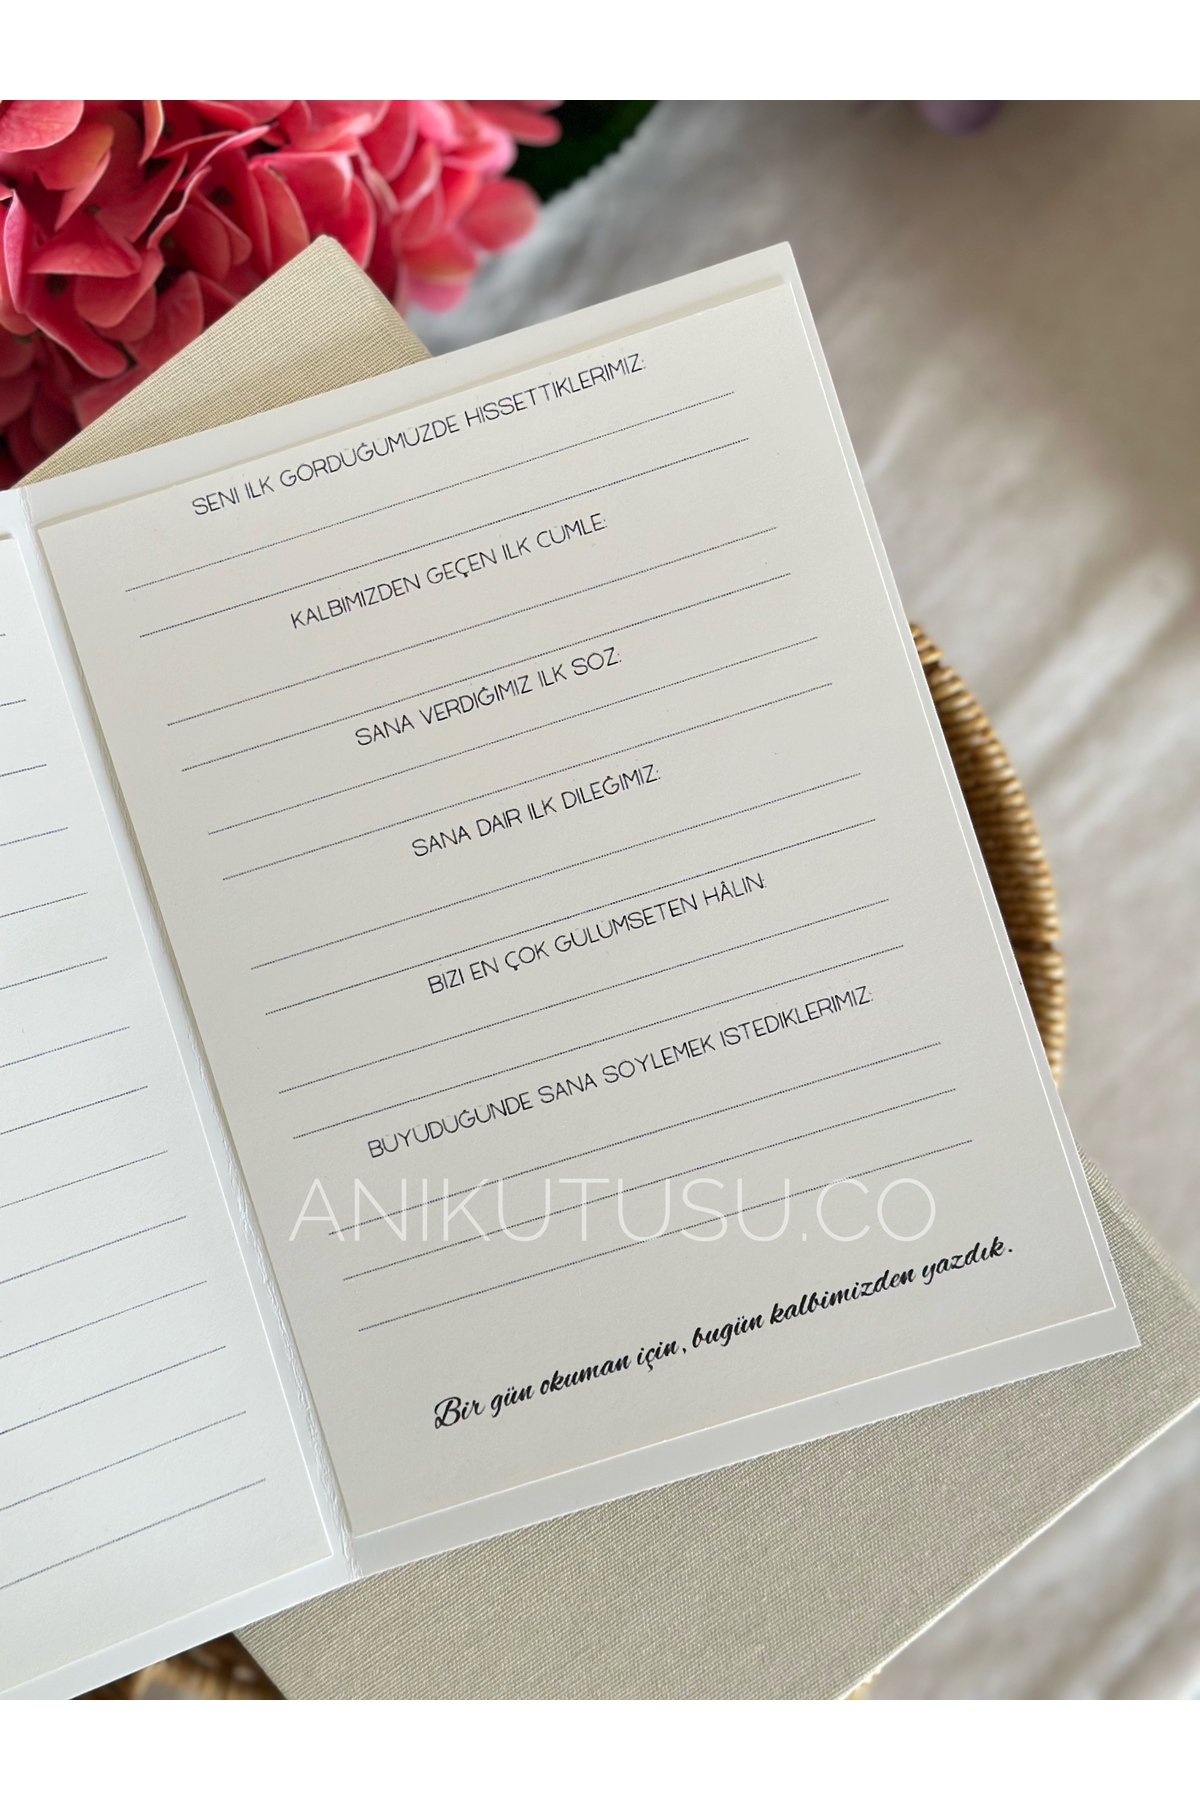 SENİ İLK GÖRDÜĞÜMÜZDE HİSSETTİKLERİMİZ:
KALBİMİZDEN GEÇEN İLK CÜMLE:
SANA VERDİĞİMİZ İLK SÖZ:
SANA DAİR İLK DİLEĞİMİZ:
BİZİ EN ÇOK GÜLÜMSETEN HÂLİN:
BÜYÜDÜĞÜNDE SANA SÖYLEMEK İSTEDİKLERİMİZ:
ANIKUTUSU.CO
Bir gün okuman için, bugün kalbimizden yazdık.